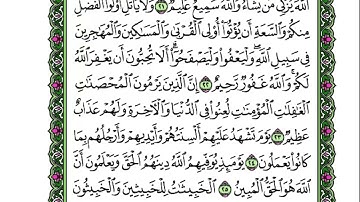 ٱللَّهَ يُزَكِّي مَن يَشَآءُ وَٱللَّهُ سَمِيعٌ عَلِيمٌ ٢١ وَلَا يَأْتَلِ أُو۟لُوا۟ ٱلْفَضْلِ
مِنكُمْ وَٱلسَّعَةِ أَن يُؤْتُوٓا۟ أُو۟لِي ٱلْقُرْبَىٰ وَٱلْمَسَـٰكِينَ وَٱلْمُهَـٰجِرِينَ
فِي سَبِيلِ ٱللَّهِ وَلْيَعْفُوا۟ وَلْيَصْفَحُوٓا۟ أَلَا تُحِبُّونَ أَن يَغْفِرَ ٱللَّهُ
لَكُمْ وَٱللَّهُ غَفُورٌ رَّحِيمٌ ٢٢ إِنَّ ٱلَّذِينَ يَرْمُونَ ٱلْمُحْصَنَـٰتِ
ٱلْغَـٰفِلَـٰتِ ٱلْمُؤْمِنَـٰتِ لُعِنُوا۟ فِي ٱلدُّنْيَا وَٱلْـَٔاخِرَةِ وَلَهُمْ عَذَابٌ
عَظِيمٌ ٢٣ يَوْمَ تَشْهَدُ عَلَيْهِمْ أَلْسِنَتُهُمْ وَأَيْدِيهِمْ وَأَرْجُلُهُم بِمَا
كَانُوا۟ يَعْمَلُونَ ٢٤ يَوْمَئِذٍ يُوَفِّيهِمُ ٱللَّهُ دِينَهُمُ ٱلْحَقَّ وَيَعْلَمُونَ أَنَّ
ٱللَّهَ هُوَ ٱلْحَقُّ ٱلْمُبِينُ ٢٥ ٱلْخَبِيثَـٰتُ لِلْخَبِيثِينَ وَٱلْخَبِيثُونَ